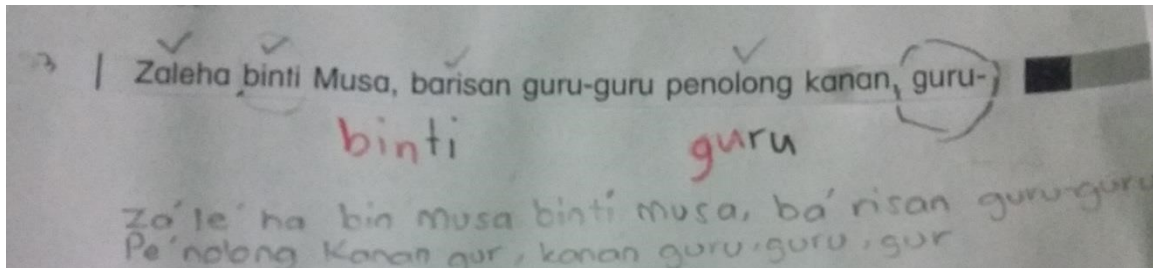 3 | Zaleha binti Musa, barisan guru-guru penolong kanan, guru-
binti guru
Za'le'ha bin musa binti musa, ba'risan guru-guru
Pe'nolong Kanan gur, kanan guru-guru, gur